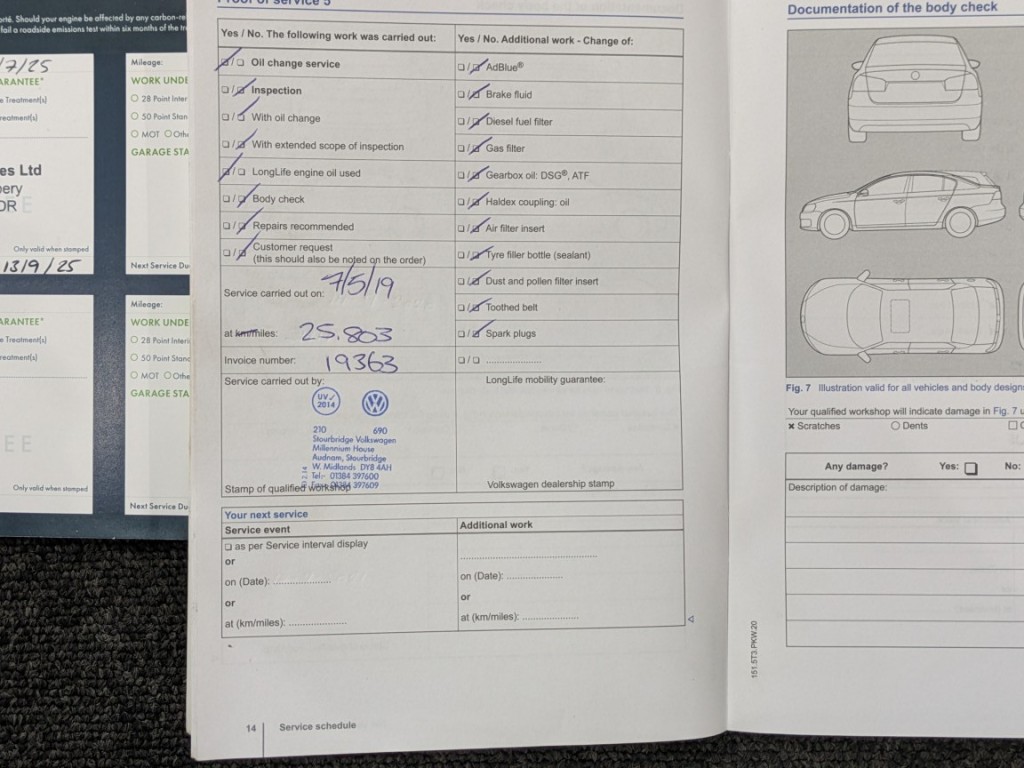 orté. Should your engine be affected by any carbon-re
fail a roadside emissions test within six months of the tr
/7/25
ARANTEE*
e Treatment(s)
reatment(s)
es Ltd
pery
DR E
Only valid when stamped
13/9/25
ARANTEE*
e Treatment(s)
reatment(s)
EE
Only valid when stamped
Mileage:
WORK UNDE
28 Point Inter
50 Point Stan
MOT Othe
GARAGE STA
Next Service Du
Mileage:
WORK UNDE
28 Point Interi
50 Point Stand
MOT Othe
GARAGE STA
Next Service Du
Proof of service 5
Yes / No. The following work was carried out:
Oil change service
Inspection
With oil change
With extended scope of inspection
LongLife engine oil used
Body check
Repairs recommended
Customer request
(this should also be noted on the order)
Service carried out on: 7/5/19
at km/miles: 25,803
Invoice number: 19363
Service carried out by:
UV
2014
210 690
Stourbridge Volkswagen
Millennium House
Audnam, Stourbridge
W. Midlands DY8 4AH
Tel:- 01384 397600
Fax:- 01384 397609
Stamp of qualified workshop
Yes / No. Additional work - Change of:
AdBlue®
Brake fluid
Diesel fuel filter
Gas filter
Gearbox oil: DSG®, ATF
Haldex coupling: oil
Air filter insert
Tyre filler bottle (sealant)
Dust and pollen filter insert
Toothed belt
Spark plugs
....................
LongLife mobility guarantee:
Volkswagen dealership stamp
Your next service
Service event
as per Service interval display
or
on (Date): ....................
or
at (km/miles): ....................
Additional work
..................................................
on (Date): ....................
or
at (km/miles): ....................
14 Service schedule
151.5T3.PKW.20
Documentation of the body check
Fig. 7 Illustration valid for all vehicles and body designs
Your qualified workshop will indicate damage in Fig. 7 u
× Scratches Dents
Any damage? Yes: No:
Description of damage: